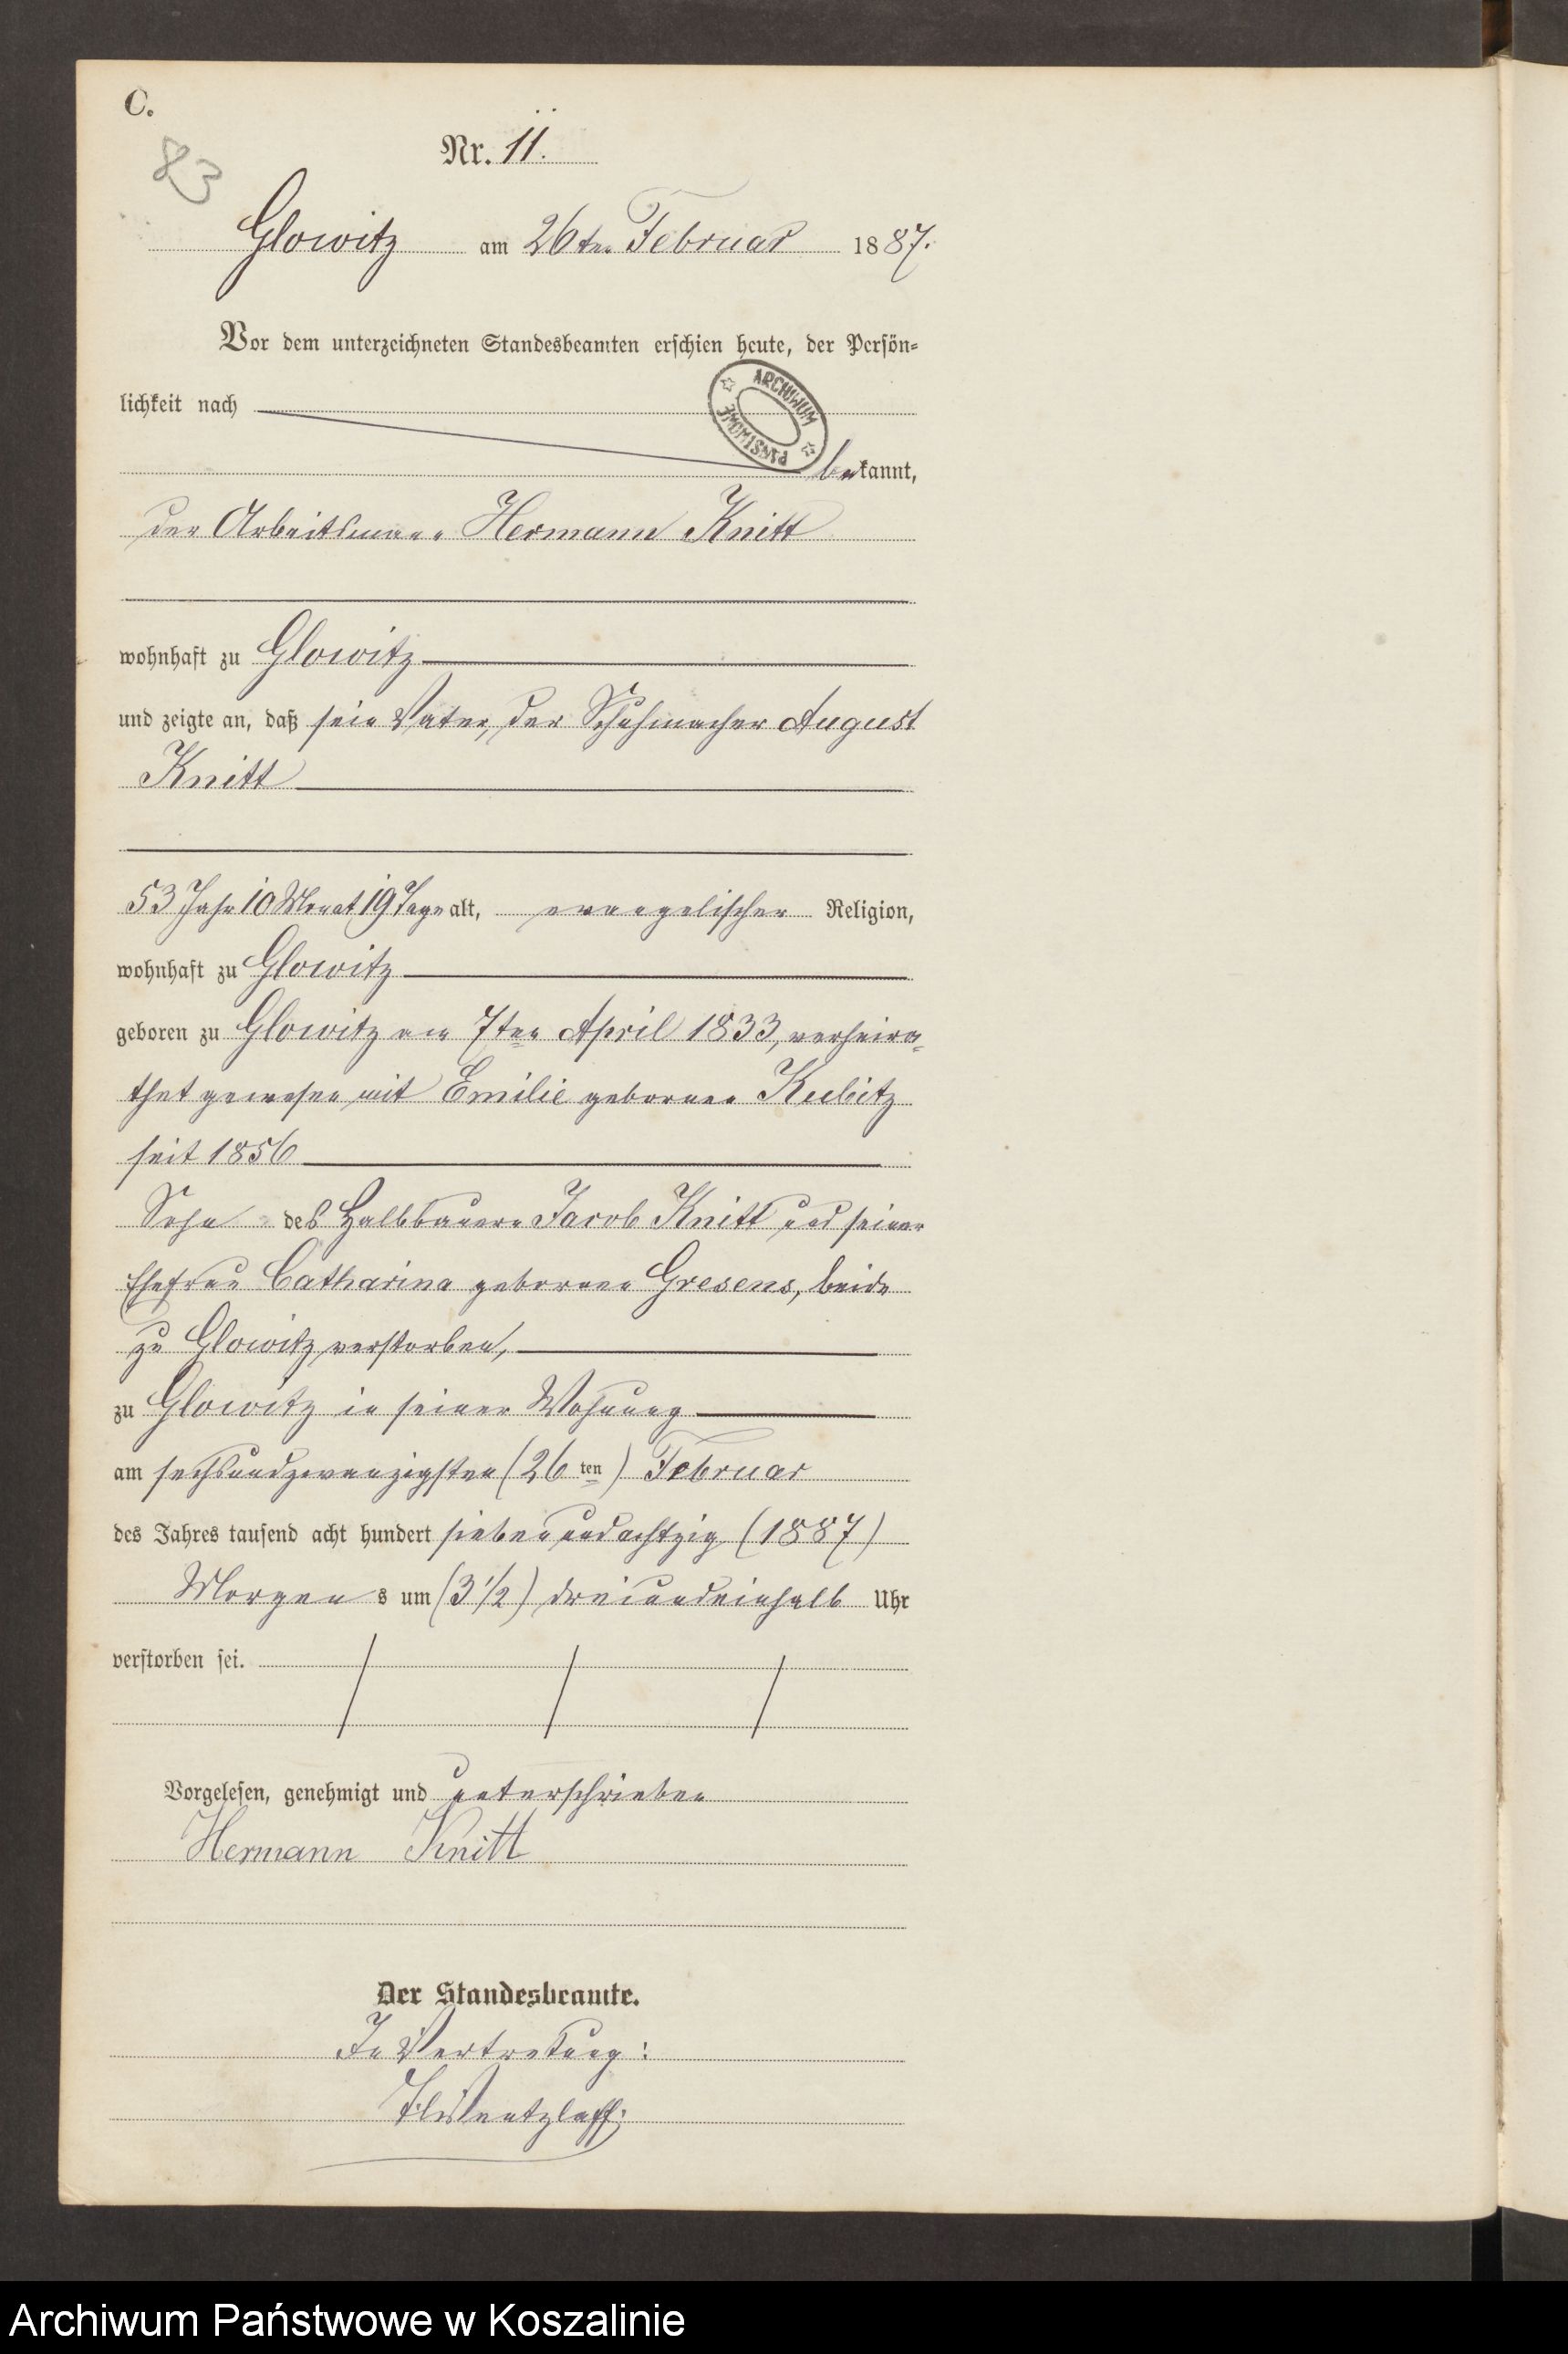 C.
83
Nr. 11.
Glowitz am 26ten Februar 1887.
Vor dem unterzeichneten Standesbeamten erschien heute, der Persön-
lichkeit nach
ARCHIWUM PAŃSTWOWE
bekannt,
der Arbeitsmann Hermann Knitt
wohnhaft zu Glowitz
und zeigte an, daß sein Vater, der Schuhmacher August
Knitt
53 Jahr 10 Monat 19 Tage alt, evangelischer Religion,
wohnhaft zu Glowitz
geboren zu Glowitz am 7ten April 1833, verheira-
thet gewesen mit Emilie geborenen Kubitz
seit 1856
Sohn des Halbbauern Jacob Knitt und seiner
Ehefrau Catharina geborenen Gresens, beide
zu Glowitz verstorben,
zu Glowitz in seiner Wohnung
am sechsundzwanzigsten (26ten) Februar
des Jahres tausend acht hundert siebenundachtzig (1887)
Morgens um (3 1/2) dreiundeinhalb Uhr
verstorben sei.
Vorgelesen, genehmigt und unterschrieben
Hermann Knitt
Der Standesbeamte.
In Vertretung:
Wentzlaff.
Archiwum Państwowe w Koszalinie